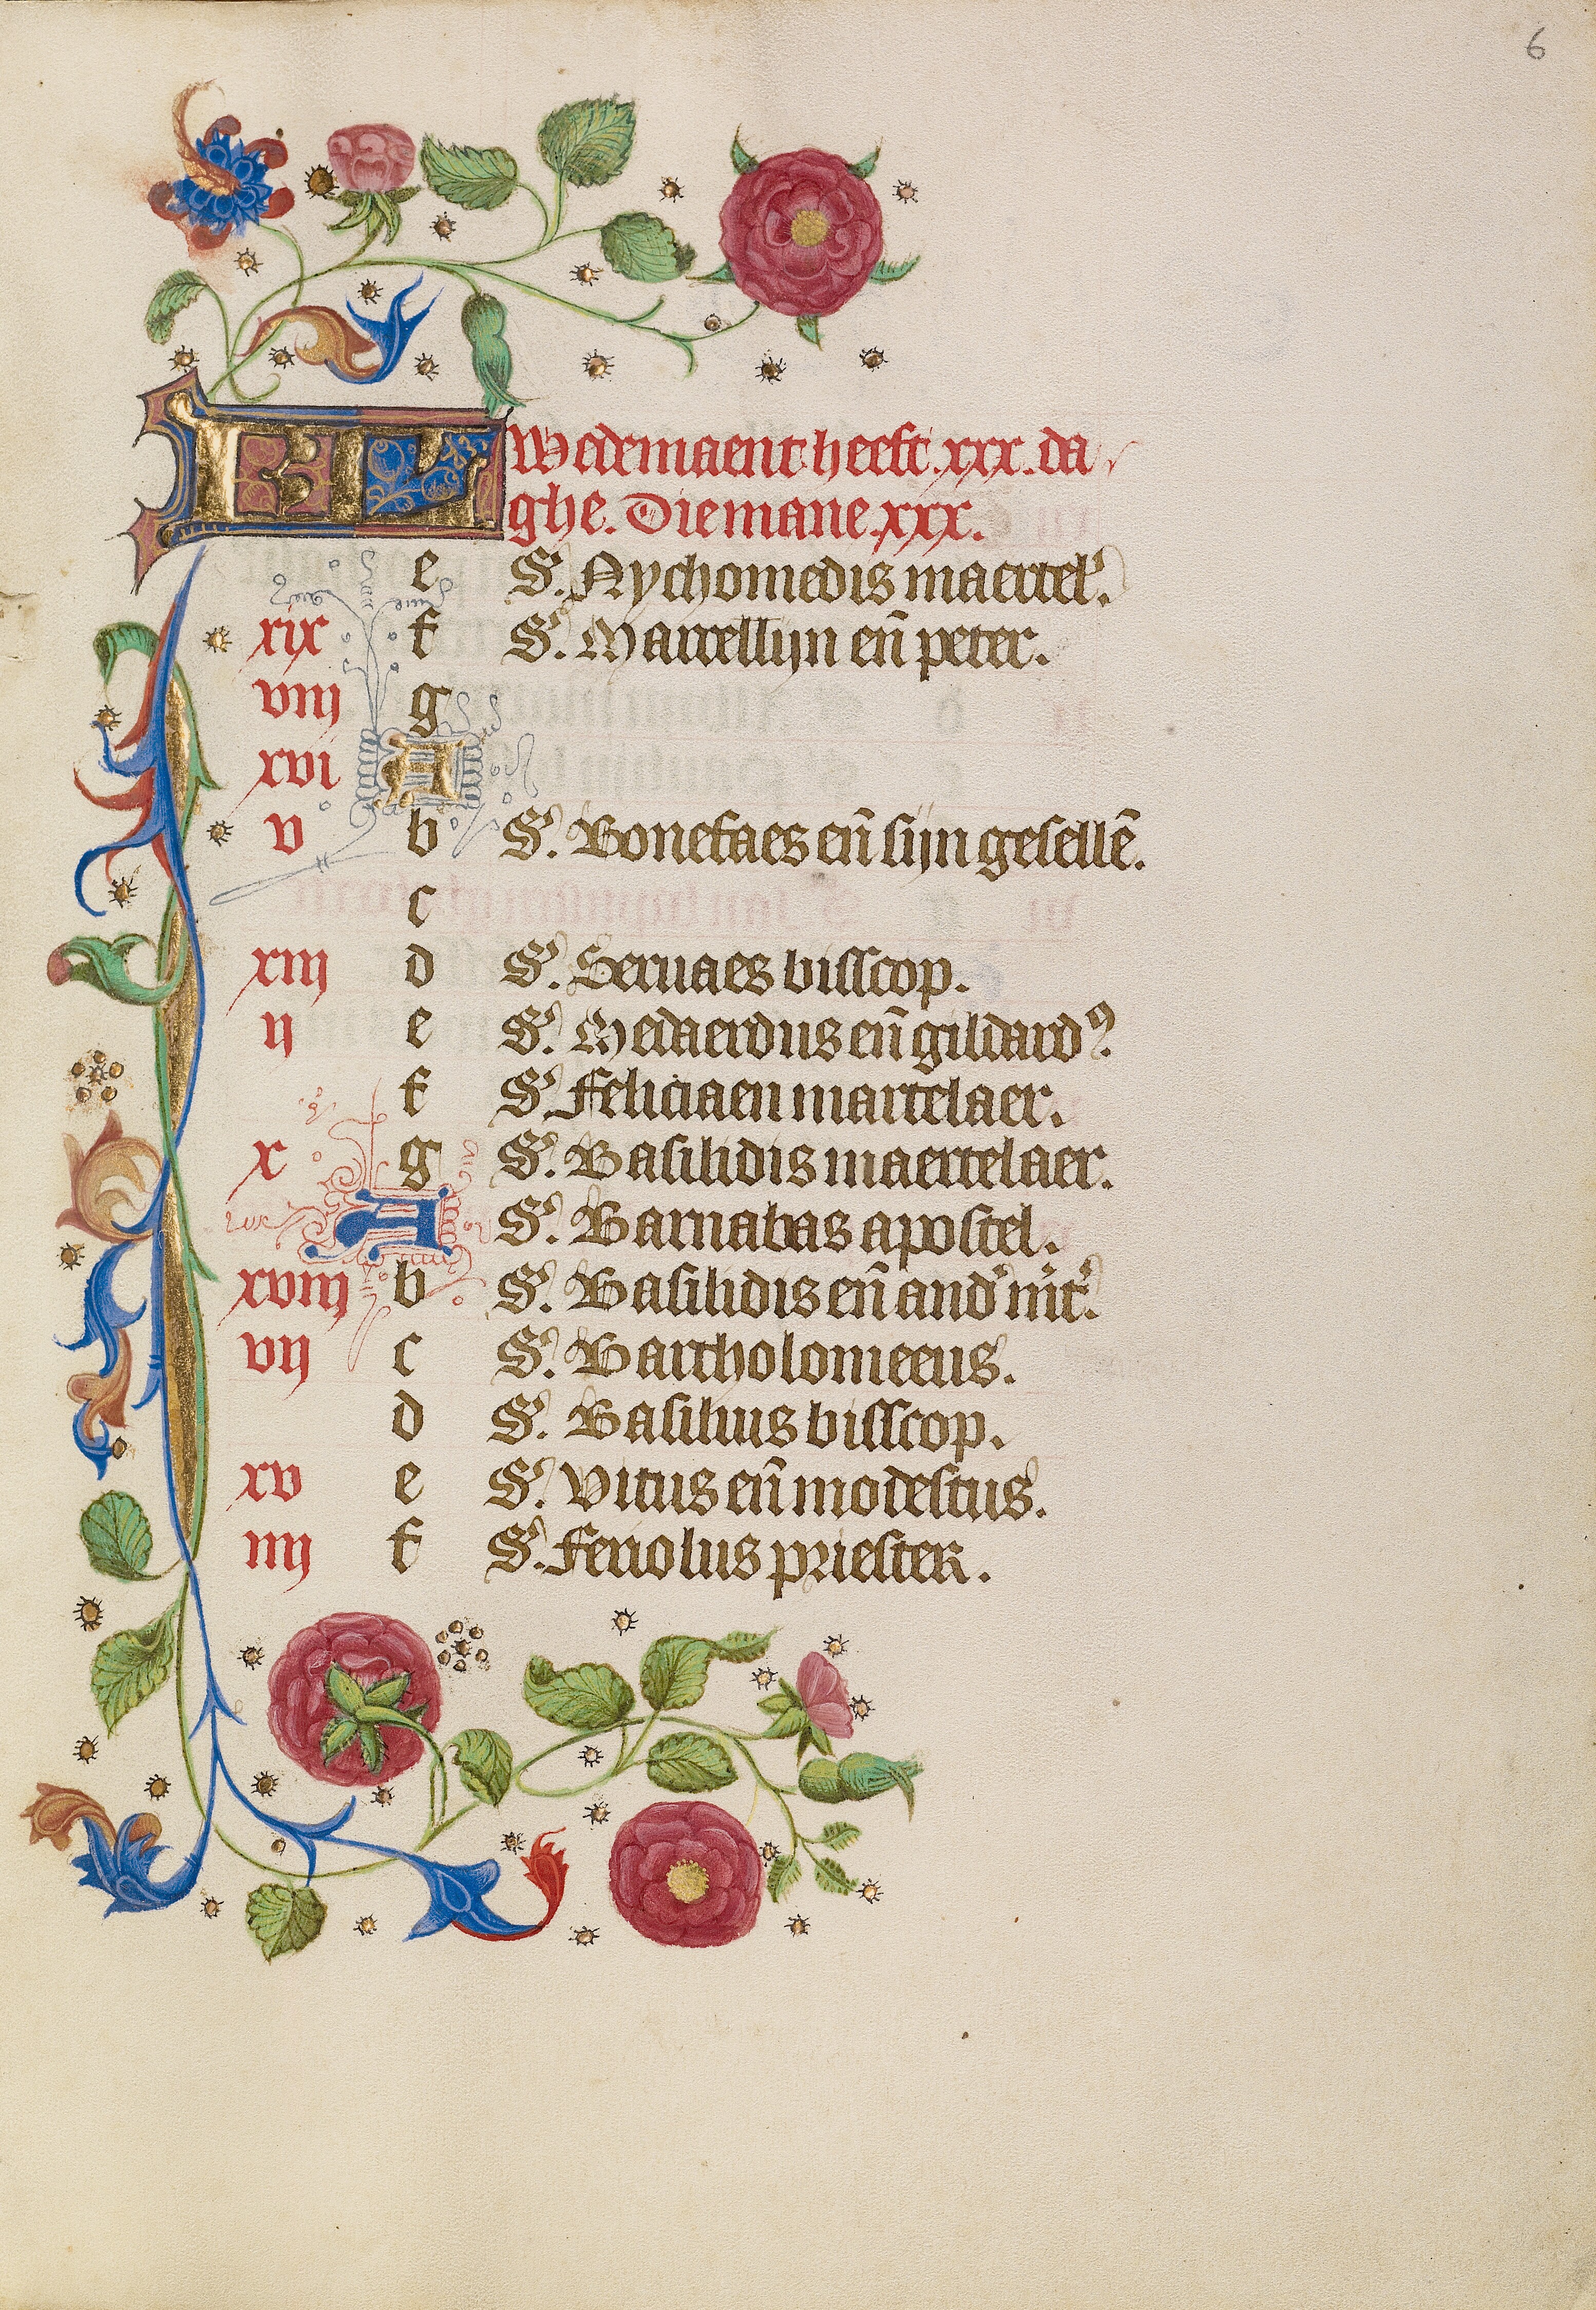 6
KL Wedemaent heeft .xxx. da
ghe. Die mane .xxx.
e S. Nychomedis maertel'.
xix f S. Marcellijn en̄ peter.
viij g
xvi A
v b S. Bonefaes en̄ sijn gesellē.
c
xiij d S. Seruaes bisscop.
ij e S. Medaerdus en̄ gildardꝰ.
f S. Feliciaen martelaer.
x g S. Basilidis maertelaer.
A S. Barnabas apostel.
xviij b S. Basilidis en̄ and' m̄t'.
vij c S. Bartholomeeus.
d S. Basilius bisscop.
xv e S. Vitus en̄ modestus.
iiij f S. Feriolus priester.